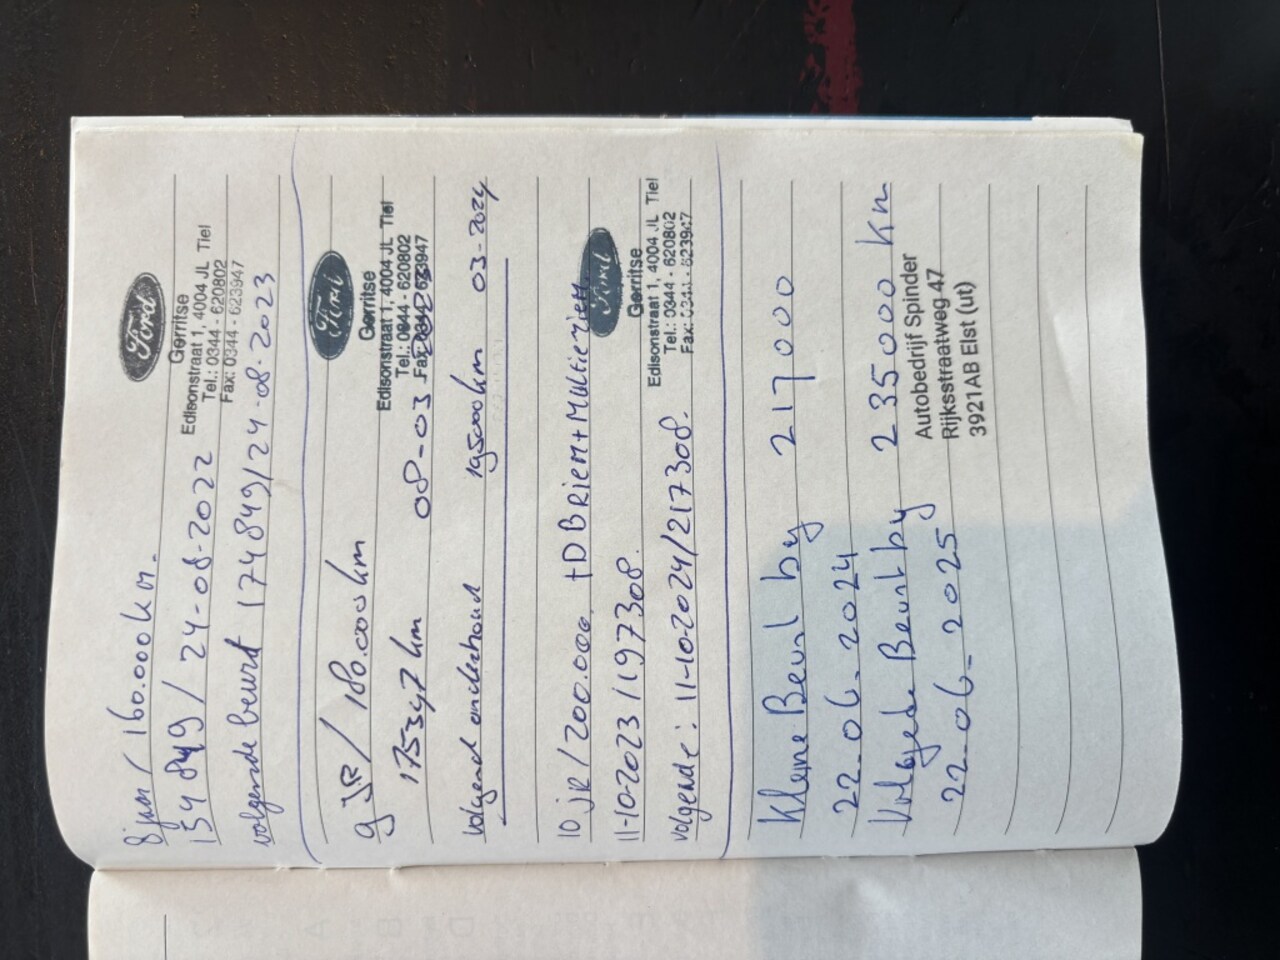 8 jaar / 160.000 km.
154849 / 24-08-2022
volgende beurt 174849/24-08-2023
Ford
Gerritse
Edisonstraat 1, 4004 JL Tiel
Tel.: 0344 - 620802
Fax: 0344 - 623947
9 JR / 180.000 km
175347 km 08-03
volgend onderhoud 195000km 03-2024
Ford
Gerritse
Edisonstraat 1, 4004 JL Tiel
Tel.: 0344 - 620802
Fax: 0344 - 623947
10 JR / 200.000. + D BRIEM + MULTIRIEM.
11-10-2023 / 197308.
volgende: 11-10-2024/217308.
Ford
Gerritse
Edisonstraat 1, 4004 JL Tiel
Tel.: 0344 - 620802
Fax: 0344 - 623947
Kleine Beurt by 217000
22-06-2024
Volgede Beurt by 235000 km
22-06-2025
Autobedrijf Spinder
Rijksstraatweg 47
3921AB Elst (ut)